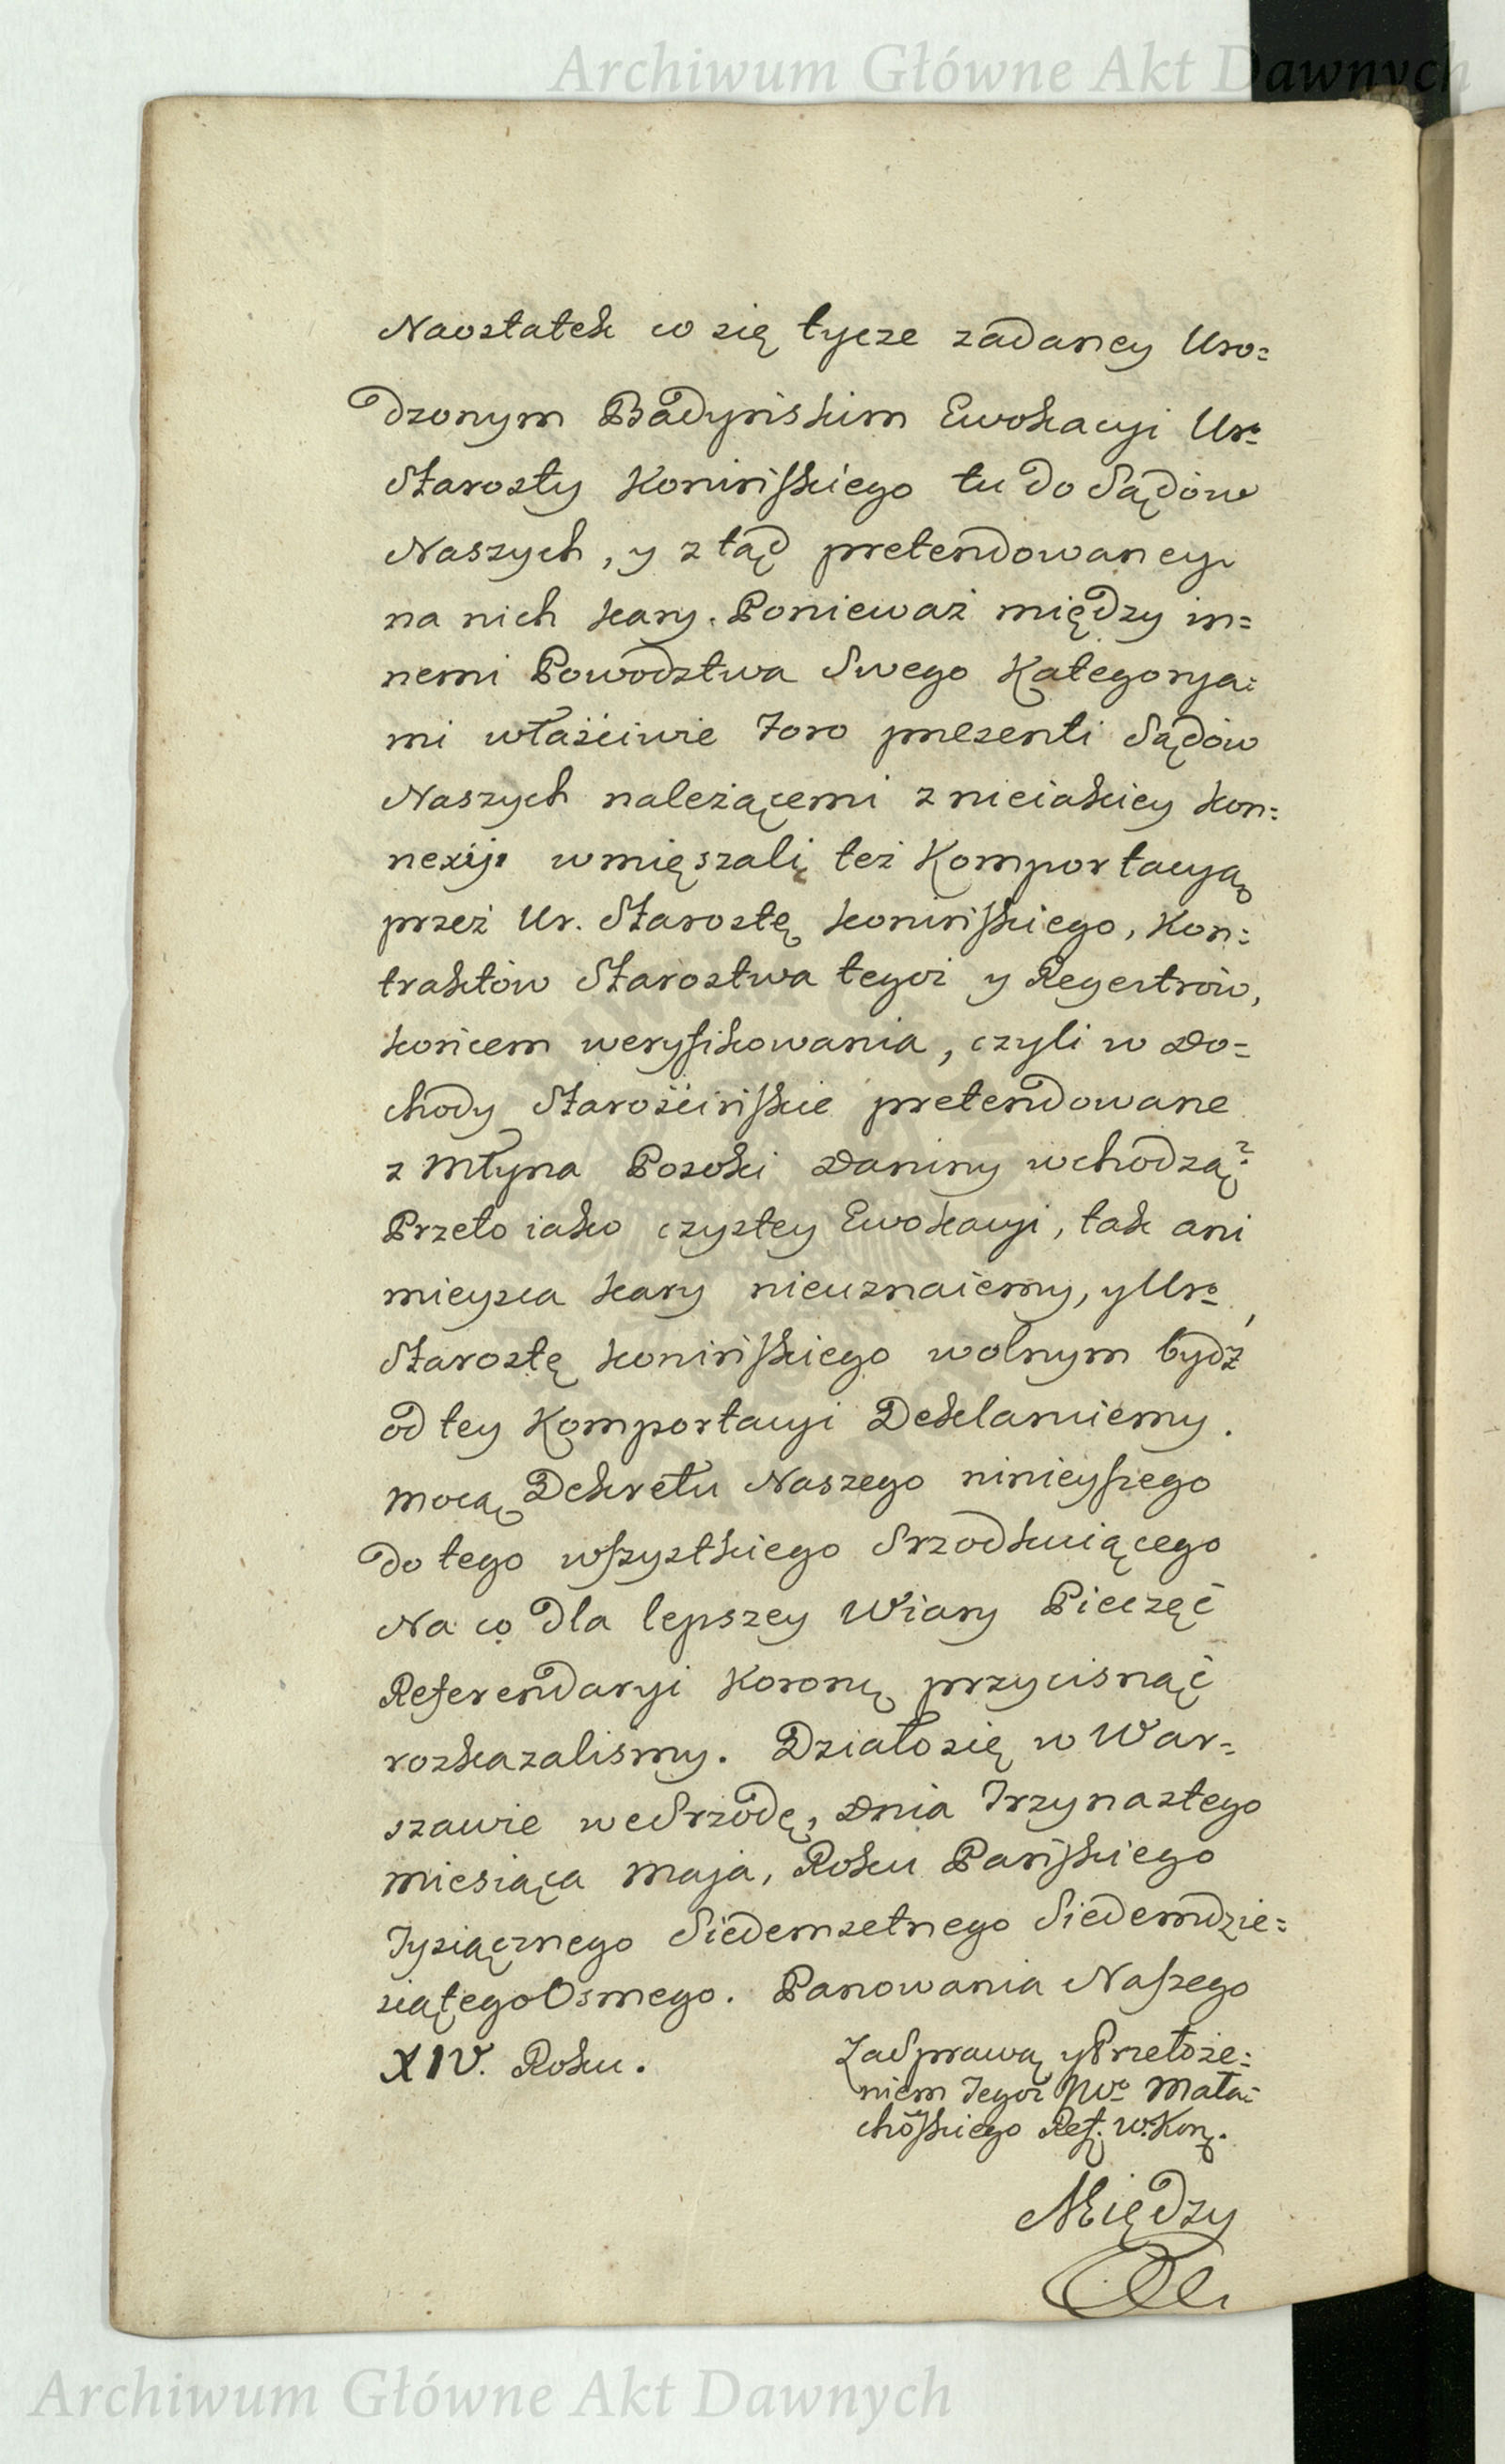 Archiwum Główne Akt Dawnych
Naostatek co się tycze zadaney Uro=
dzonym Badyńskim Ewokacyi Uro
Starosty Konińskiego tu do Sądów
Naszych, y ztąd pretendowaney
na nich kary. Ponieważ między in=
nemi Powodztwa Swego Kategorya=
mi właściwie Foro praesenti Sądów
Naszych należącemi z nieiakiey kon=
nexyi wmięszali też Komportacyą
przez Ur. Starostę konińskiego, Kon=
traktów Starostwa tegoż y Regestrów,
końcem weryfikowania, czyli w Do=
chody Starościńskie pretendowane
z Młyna Posoki Daniny wchodzą?
Przeto iako czystey Ewokacyi, tak ani
mieysca kary nieuznaiemy, y Uro
Starostę konińskiego wolnym bydź
od tey Komportacyi Deklaruiemy.
Mocą Dekretu Naszego ninieyszego
do tego wszystkiego Srzodkuiącego
Na co dla lepszey Wiary Pieczęć
Referendaryi Koronney przycisnąć
rozkazalismy. Działo się w War=
szawie we Srzodę, Dnia Trzynastego
miesiąca Maja, Roku Pańskiego
Tysiącznego Siedemsetnego Siedemdzie=
siątego Osmego. Panowania Naszego
XIV. Roku.
Za Sprawą y Przełoże=
niem Tegoż JWo Mała=
choskiego Ref. W. Kor.
Między
Archiwum Główne Akt Dawnych